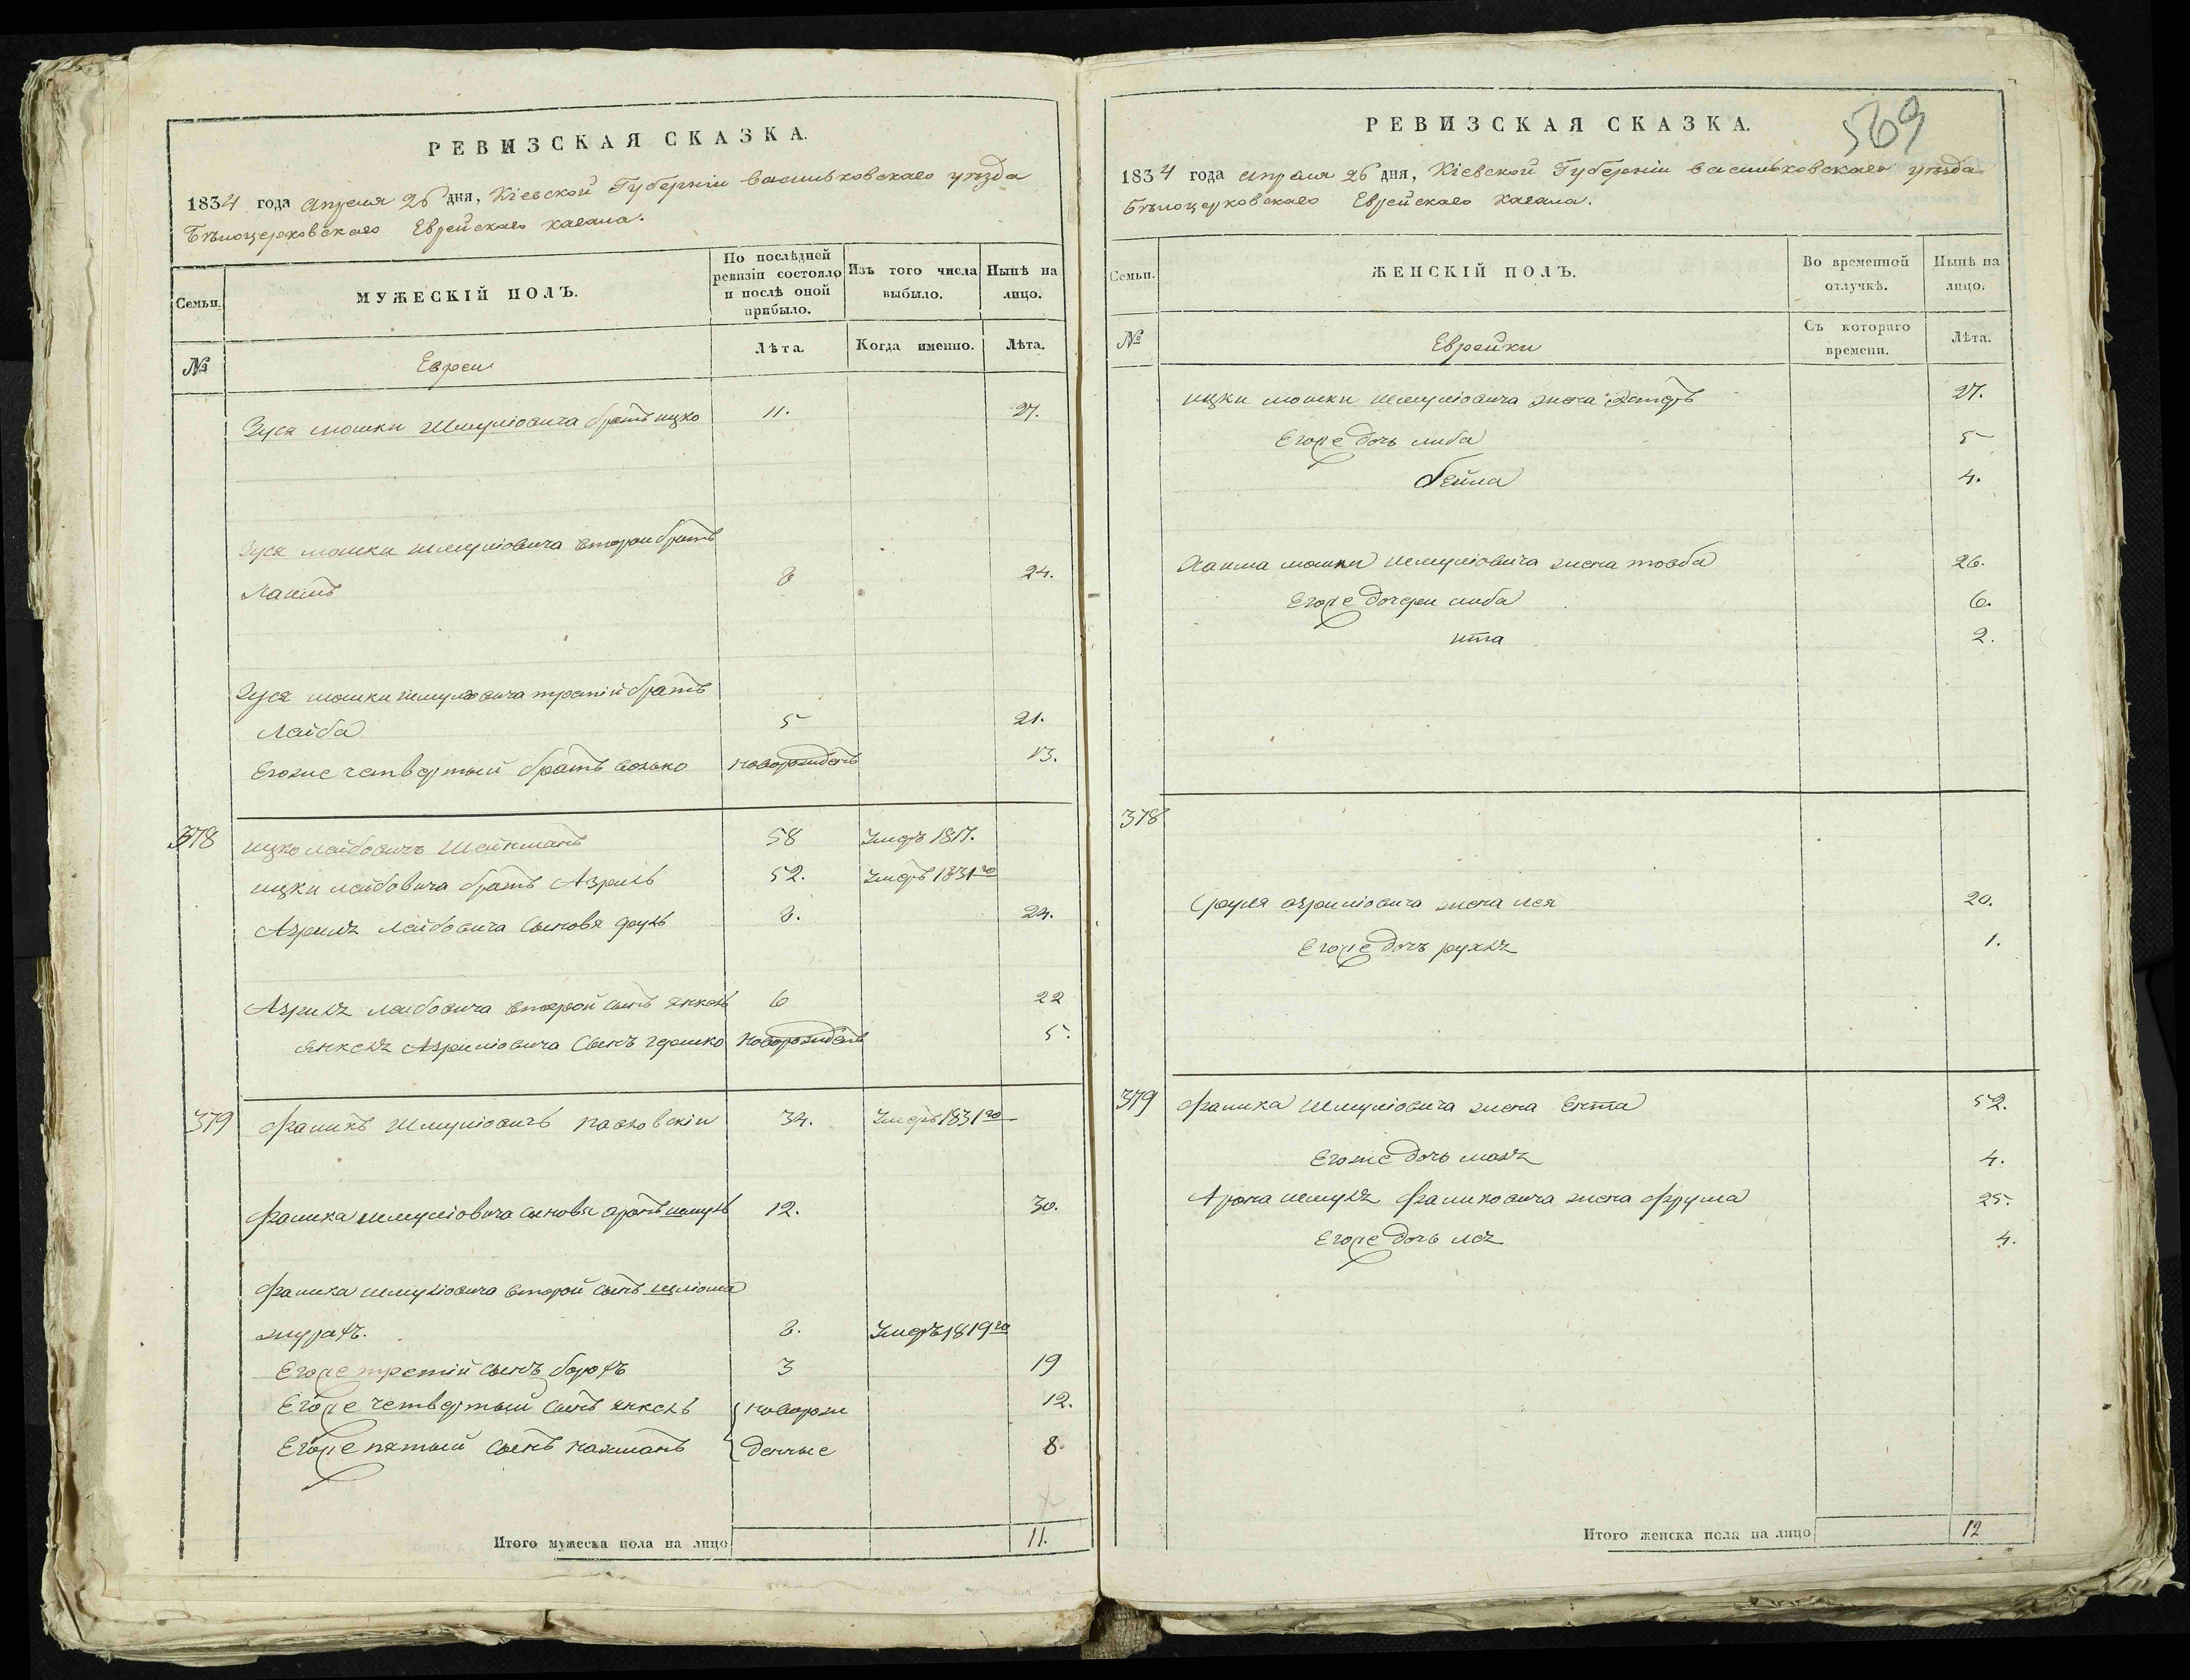 РЕВИЗСКАЯ СКАЗКА.
1834 года апреля 26 дня, Кіевской Губерніи васильковскаго уѣзда
Бѣлоцерковскаго Еврейскаго кагала.
Семьи.
МУЖЕСКІЙ ПОЛЪ.
По послѣдней ревизіи состояло и послѣ оной прибыло.
Изъ того числа выбыло.
Нынѣ на лицо.
№
Евреи
Лѣта.
Когда именно.
Лѣта.
Зуся мошки Шмуліовича братъ ицко 11. 27.
Зуся мошки шмуліовича второи братъ
8 24.
Зуся мошки шмуліовича третій братъ
Лейба 5 21.
Егоже четвертый братъ волько новорожденъ 13.
378 ицко лейбовичъ Шейнманъ 58 Умеръ 1817.
ицки лейбовича братъ Азриль 52. Умеръ 1831го
Азриля лейбовича сыновя сруль 8. 24.
Азриля лейбовича второй сынъ янкель 6 22
янкеля Азриліовича сынъ гершко Новорожденъ 5.
379 Фаликъ Шмуліовичъ Павловскіи 34. Умеръ 1831го
Фалика шмуліовича сыновя аронъ шмуль 12. 30.
Фалика шмуліовича второй сынъ шліома
8. Умеръ 1819го
Егоже третій сынъ борохъ 3 19
Егоже четвертый сынъ янкель новорож 12.
Егоже пятый сынъ нахманъ денные 8.
Итого мужеска пола на лицо 11.
РЕВИЗСКАЯ СКАЗКА.
569
1834 года апреля 26 дня, Кіевской Губерніи васильковскаго уѣзда
Бѣлоцерковскаго Еврейскаго кагала.
Семьи.
ЖЕНСКІЙ ПОЛЪ.
Во временной отлучкѣ.
Нынѣ на лицо.
№
Еврейки
Съ котораго времени.
Лѣта.
ицки мошки шмуліовича жена Эстеръ 27.
Егоже дочь либа 5
бейла 4.
мошки шмуліовича жена товба 26.
Егоже дочери либа 6.
ита 2.
378
Сруля азриліовича жена лея 20.
Егоже дочь рухля 1.
379 Фалика Шмуліовича жена Ента 52.
Егоже дочь маля 4.
Арона шмуля Фаликовича жена Фрума 25.
Егоже дочь лея 4.
Итого женска пола на лицо 12